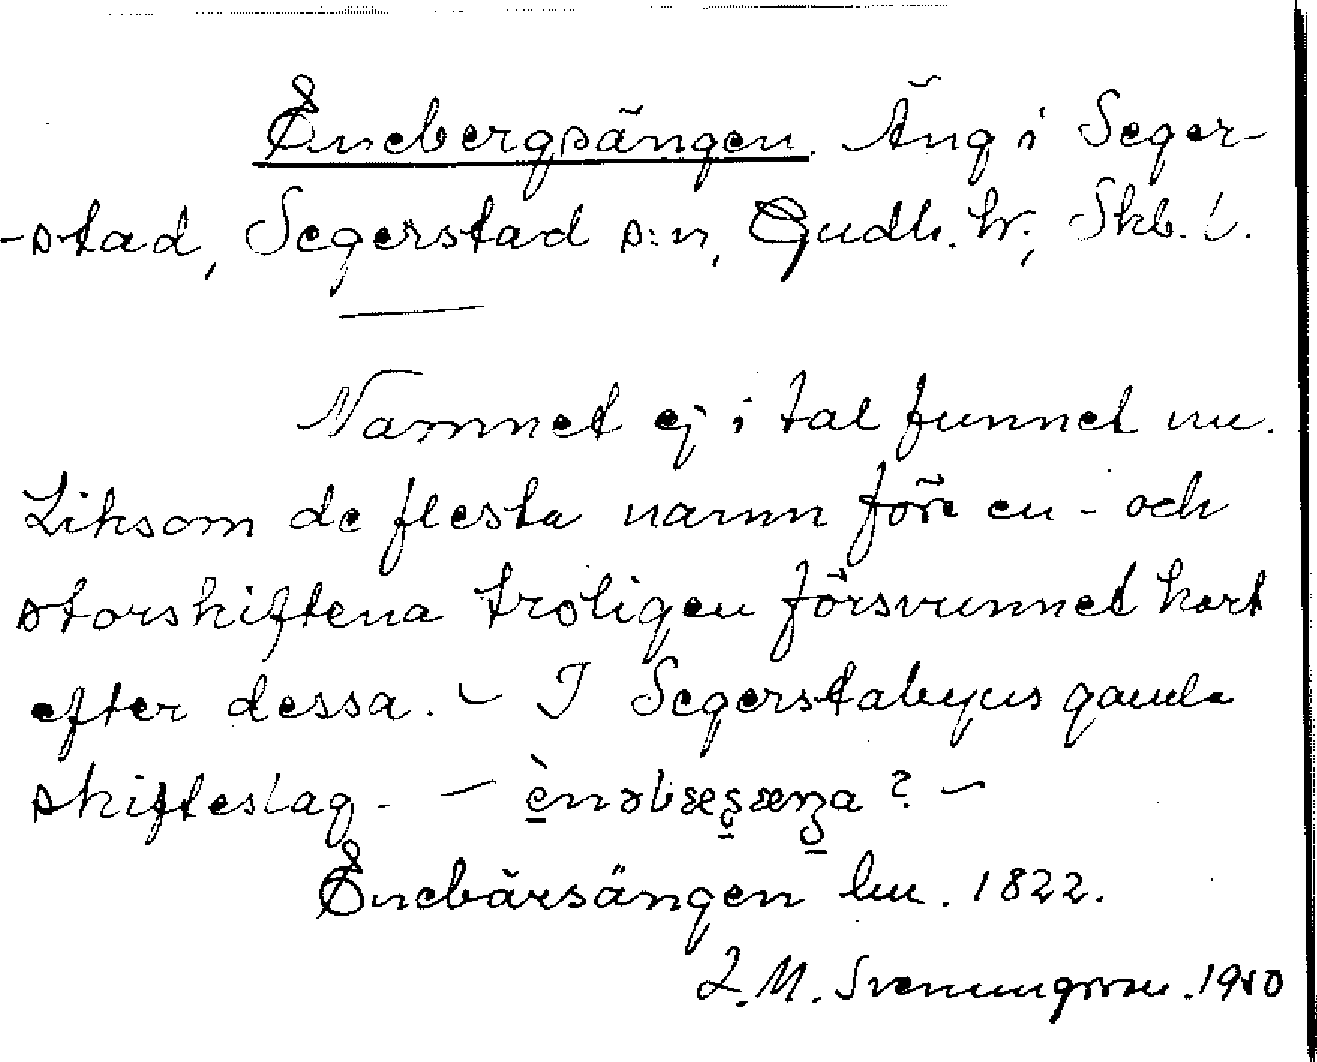 Enebergsängen. Äng i Seger-
-stad, Segerstad s:n, Gudh. hr., Skb. l.
Namnet ej i tal funnet nu.
Liksom de flesta namn före en- och
storskiftena troligen försvunnet kort
efter dessa. - I Segerstabyns gamla
skifteslag. - ènəbæʂæŋa ? -
Enebärsängen lm. 1822.
L. M. Svenungsson. 1940